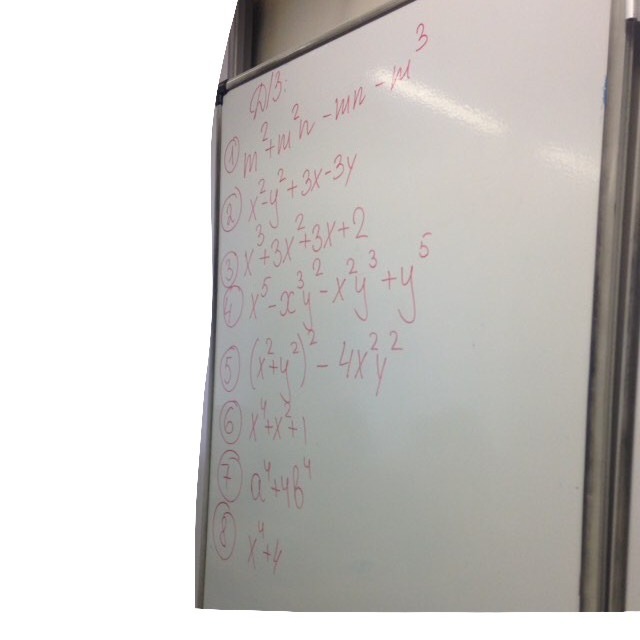 Д/З:
① m²+m²n-mn-m³
② x²-y²+3x-3y
③ x³+3x²+3x+2
④ x⁵-x³y²-x²y³+y⁵
⑤ (x²+y²)²-4x²y²
⑥ x⁴+x²+1
⑦ a⁴+4b⁴
⑧ x⁴+4